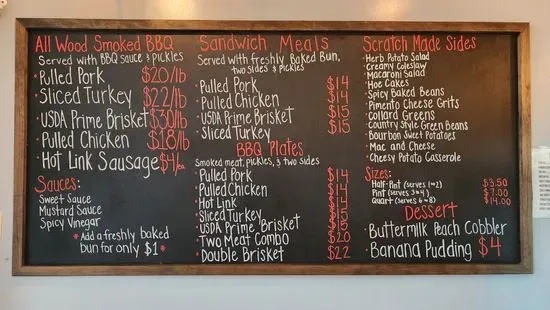 All Wood Smoked BBQ
Served with BBQ sauce & pickles
• Pulled Pork $20/lb
• Sliced Turkey $22/lb
• USDA Prime Brisket $30/lb
• Pulled Chicken $18/lb
• Hot Link Sausage $4/ea
Sauces:
Sweet Sauce
Mustard Sauce
Spicy Vinegar
*Add a freshly baked
bun for only $1*
Sandwich Meals
Served with freshly Baked Bun,
two sides & pickles
• Pulled Pork $14
• Pulled Chicken $14
• USDA Prime Brisket $15
• Sliced Turkey $15
BBQ Plates
Smoked meat, pickles, & two sides
• Pulled Pork $14
• Pulled Chicken $14
• Hot Link $14
• Sliced Turkey $15
• USDA Prime Brisket $15
• Two Meat Combo $20
• Double Brisket $22
Scratch Made Sides
• Herb Potato Salad
• Creamy Coleslaw
• Macaroni Salad
• Hoe Cakes
• Spicy Baked Beans
• Pimento Cheese Grits
• Collard Greens
• Country Style Green Beans
• Bourbon Sweet Potatoes
• Mac and Cheese
• Cheesy Potato Casserole
Sizes:
Half-Pint (serves 1-2) $3.50
Pint (serves 3-4) $7.00
Quart (serves 6-8) $14.00
Dessert
• Buttermilk Peach Cobbler
• Banana Pudding $4